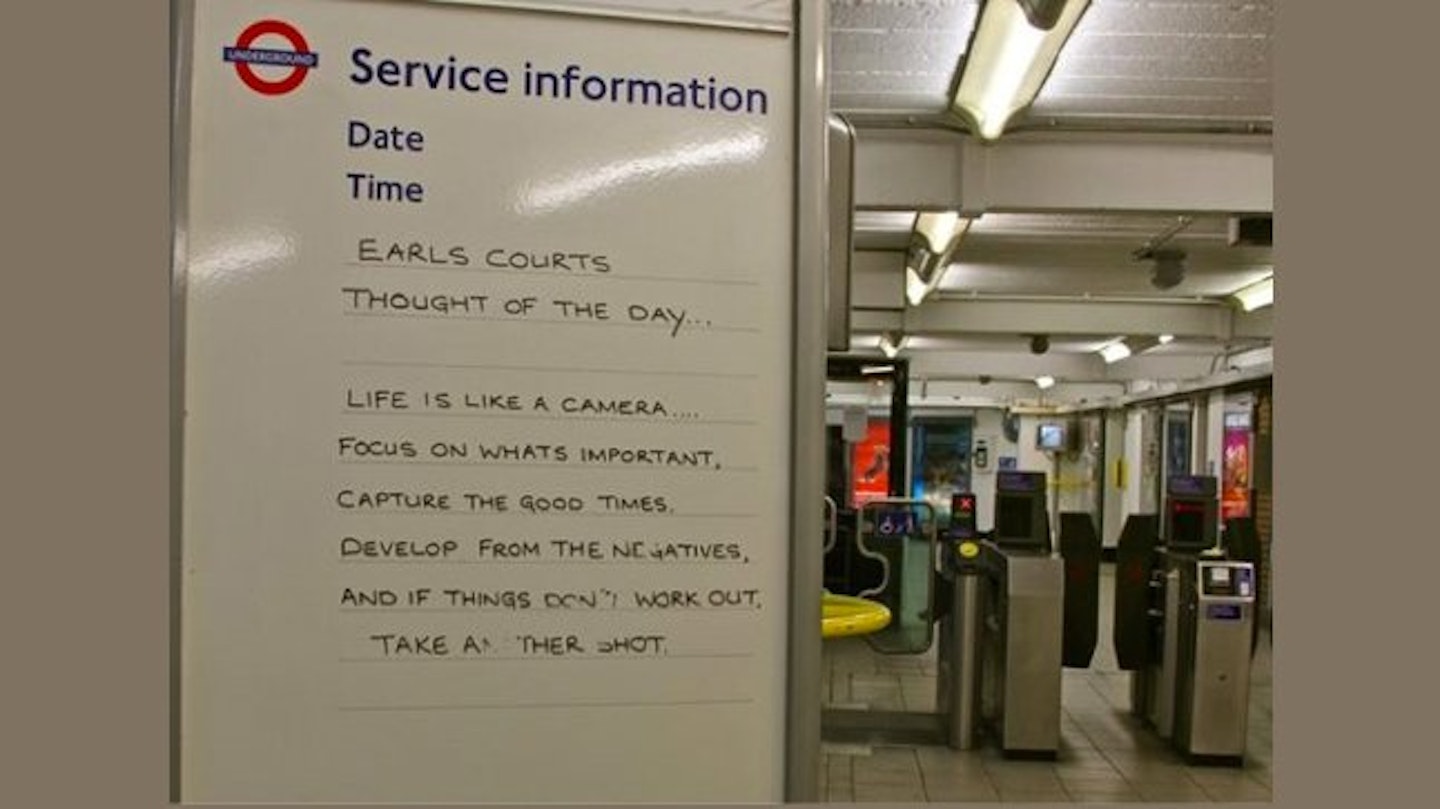 UNDERGROUND
Service information
Date
Time
EARLS COURTS
THOUGHT OF THE DAY...
LIFE IS LIKE A CAMERA....
FOCUS ON WHATS IMPORTANT,
CAPTURE THE GOOD TIMES,
DEVELOP FROM THE NEGATIVES,
AND IF THINGS DON'T WORK OUT,
TAKE ANOTHER SHOT.